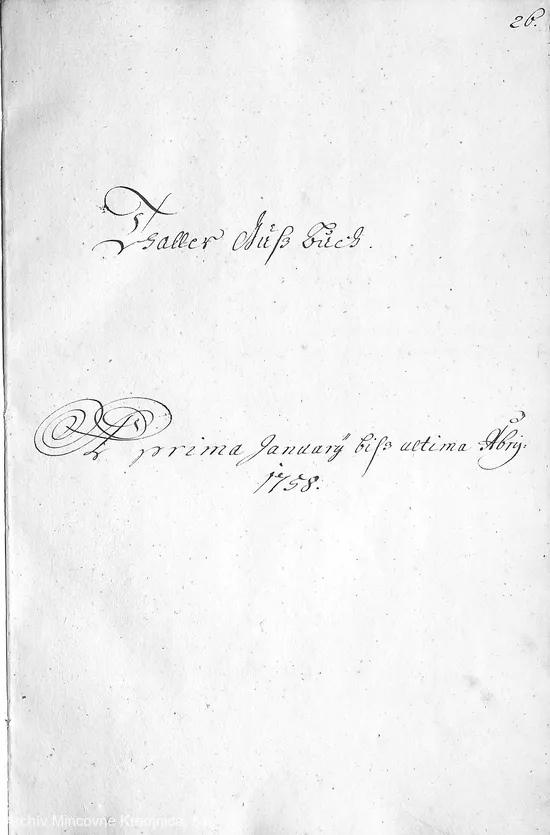 26.
Thaller Guß Buch.
A prima Januarÿ biß ultima Xbrij:
1758.
Archív Mincovne Kremnica,